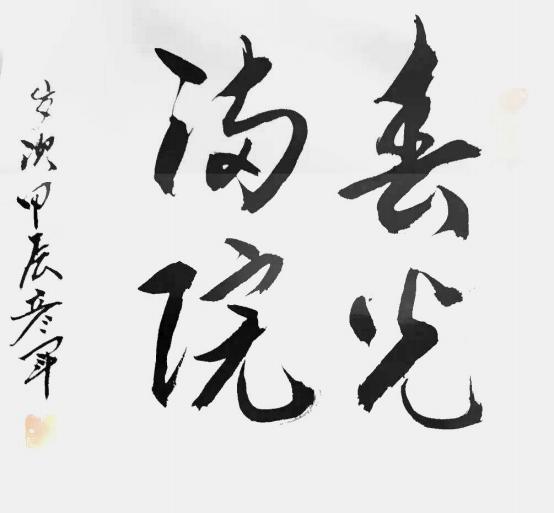 春光
满院
岁次甲辰彦军